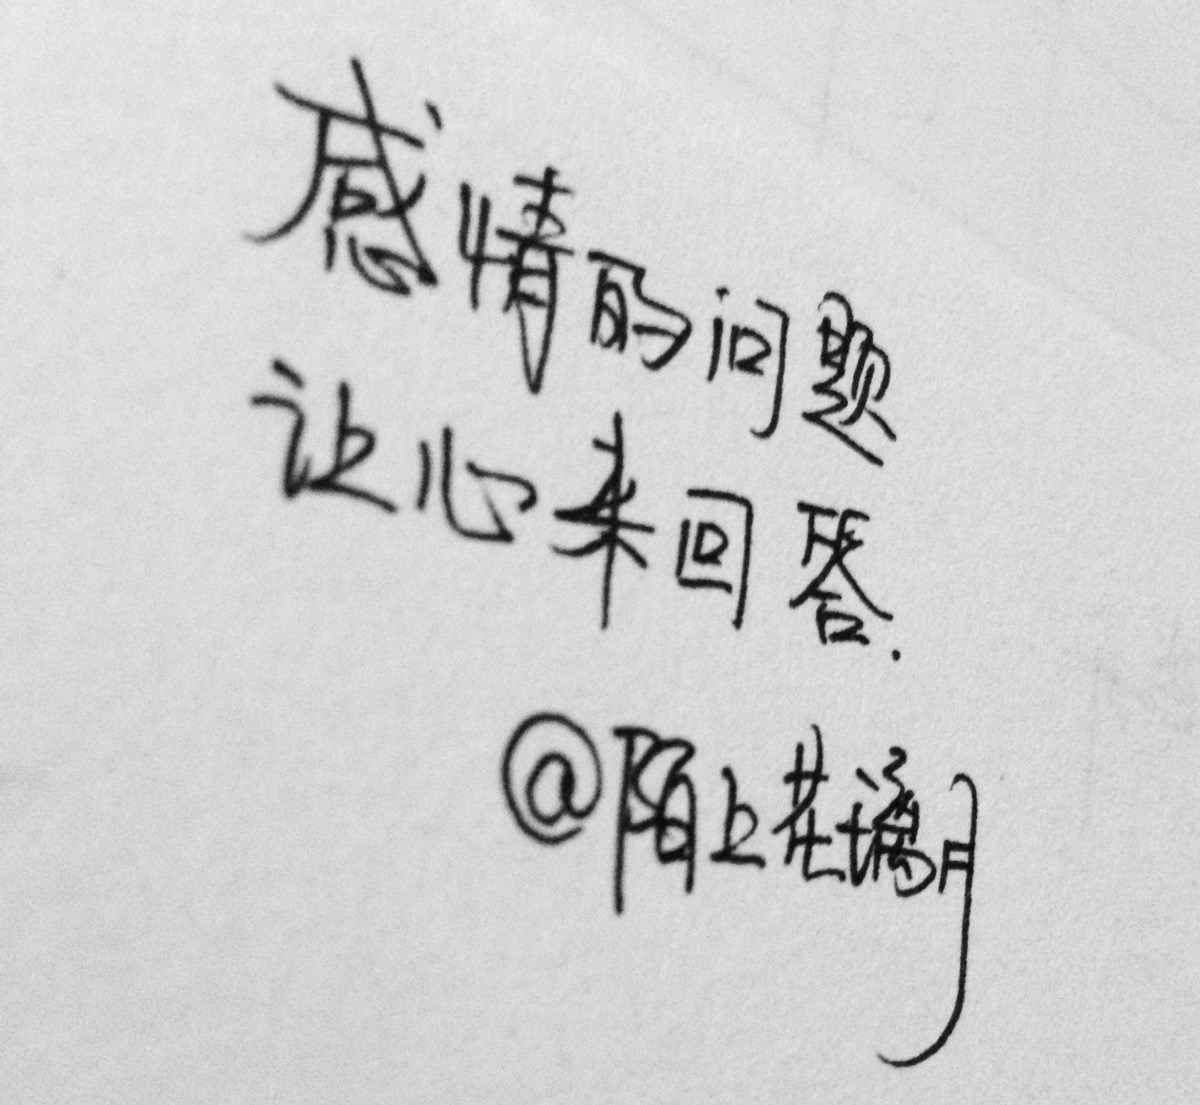 感情的问题
让心来回答.
@陌上花漓月